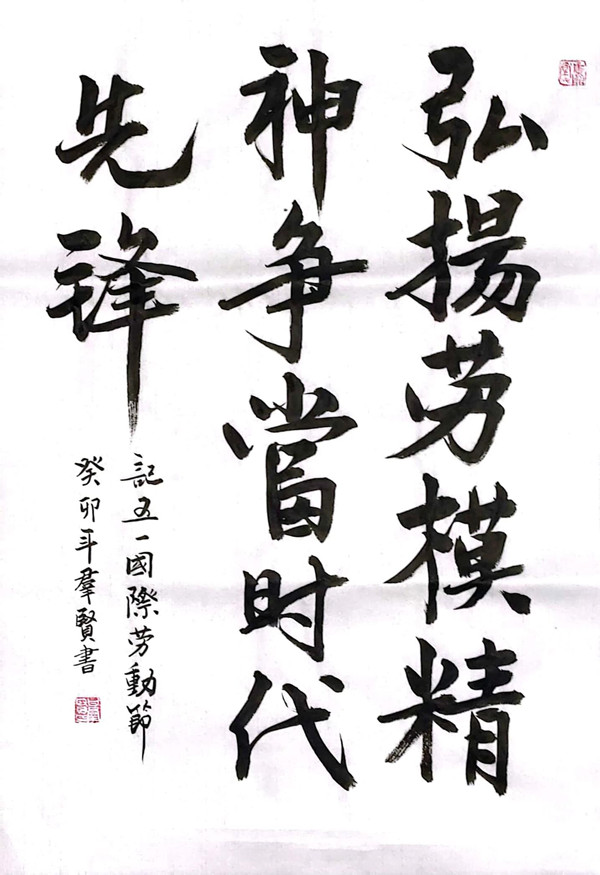 弘揚劳模精
神争當时代
先鋒
記五一國際劳動節
癸卯年羣賢書